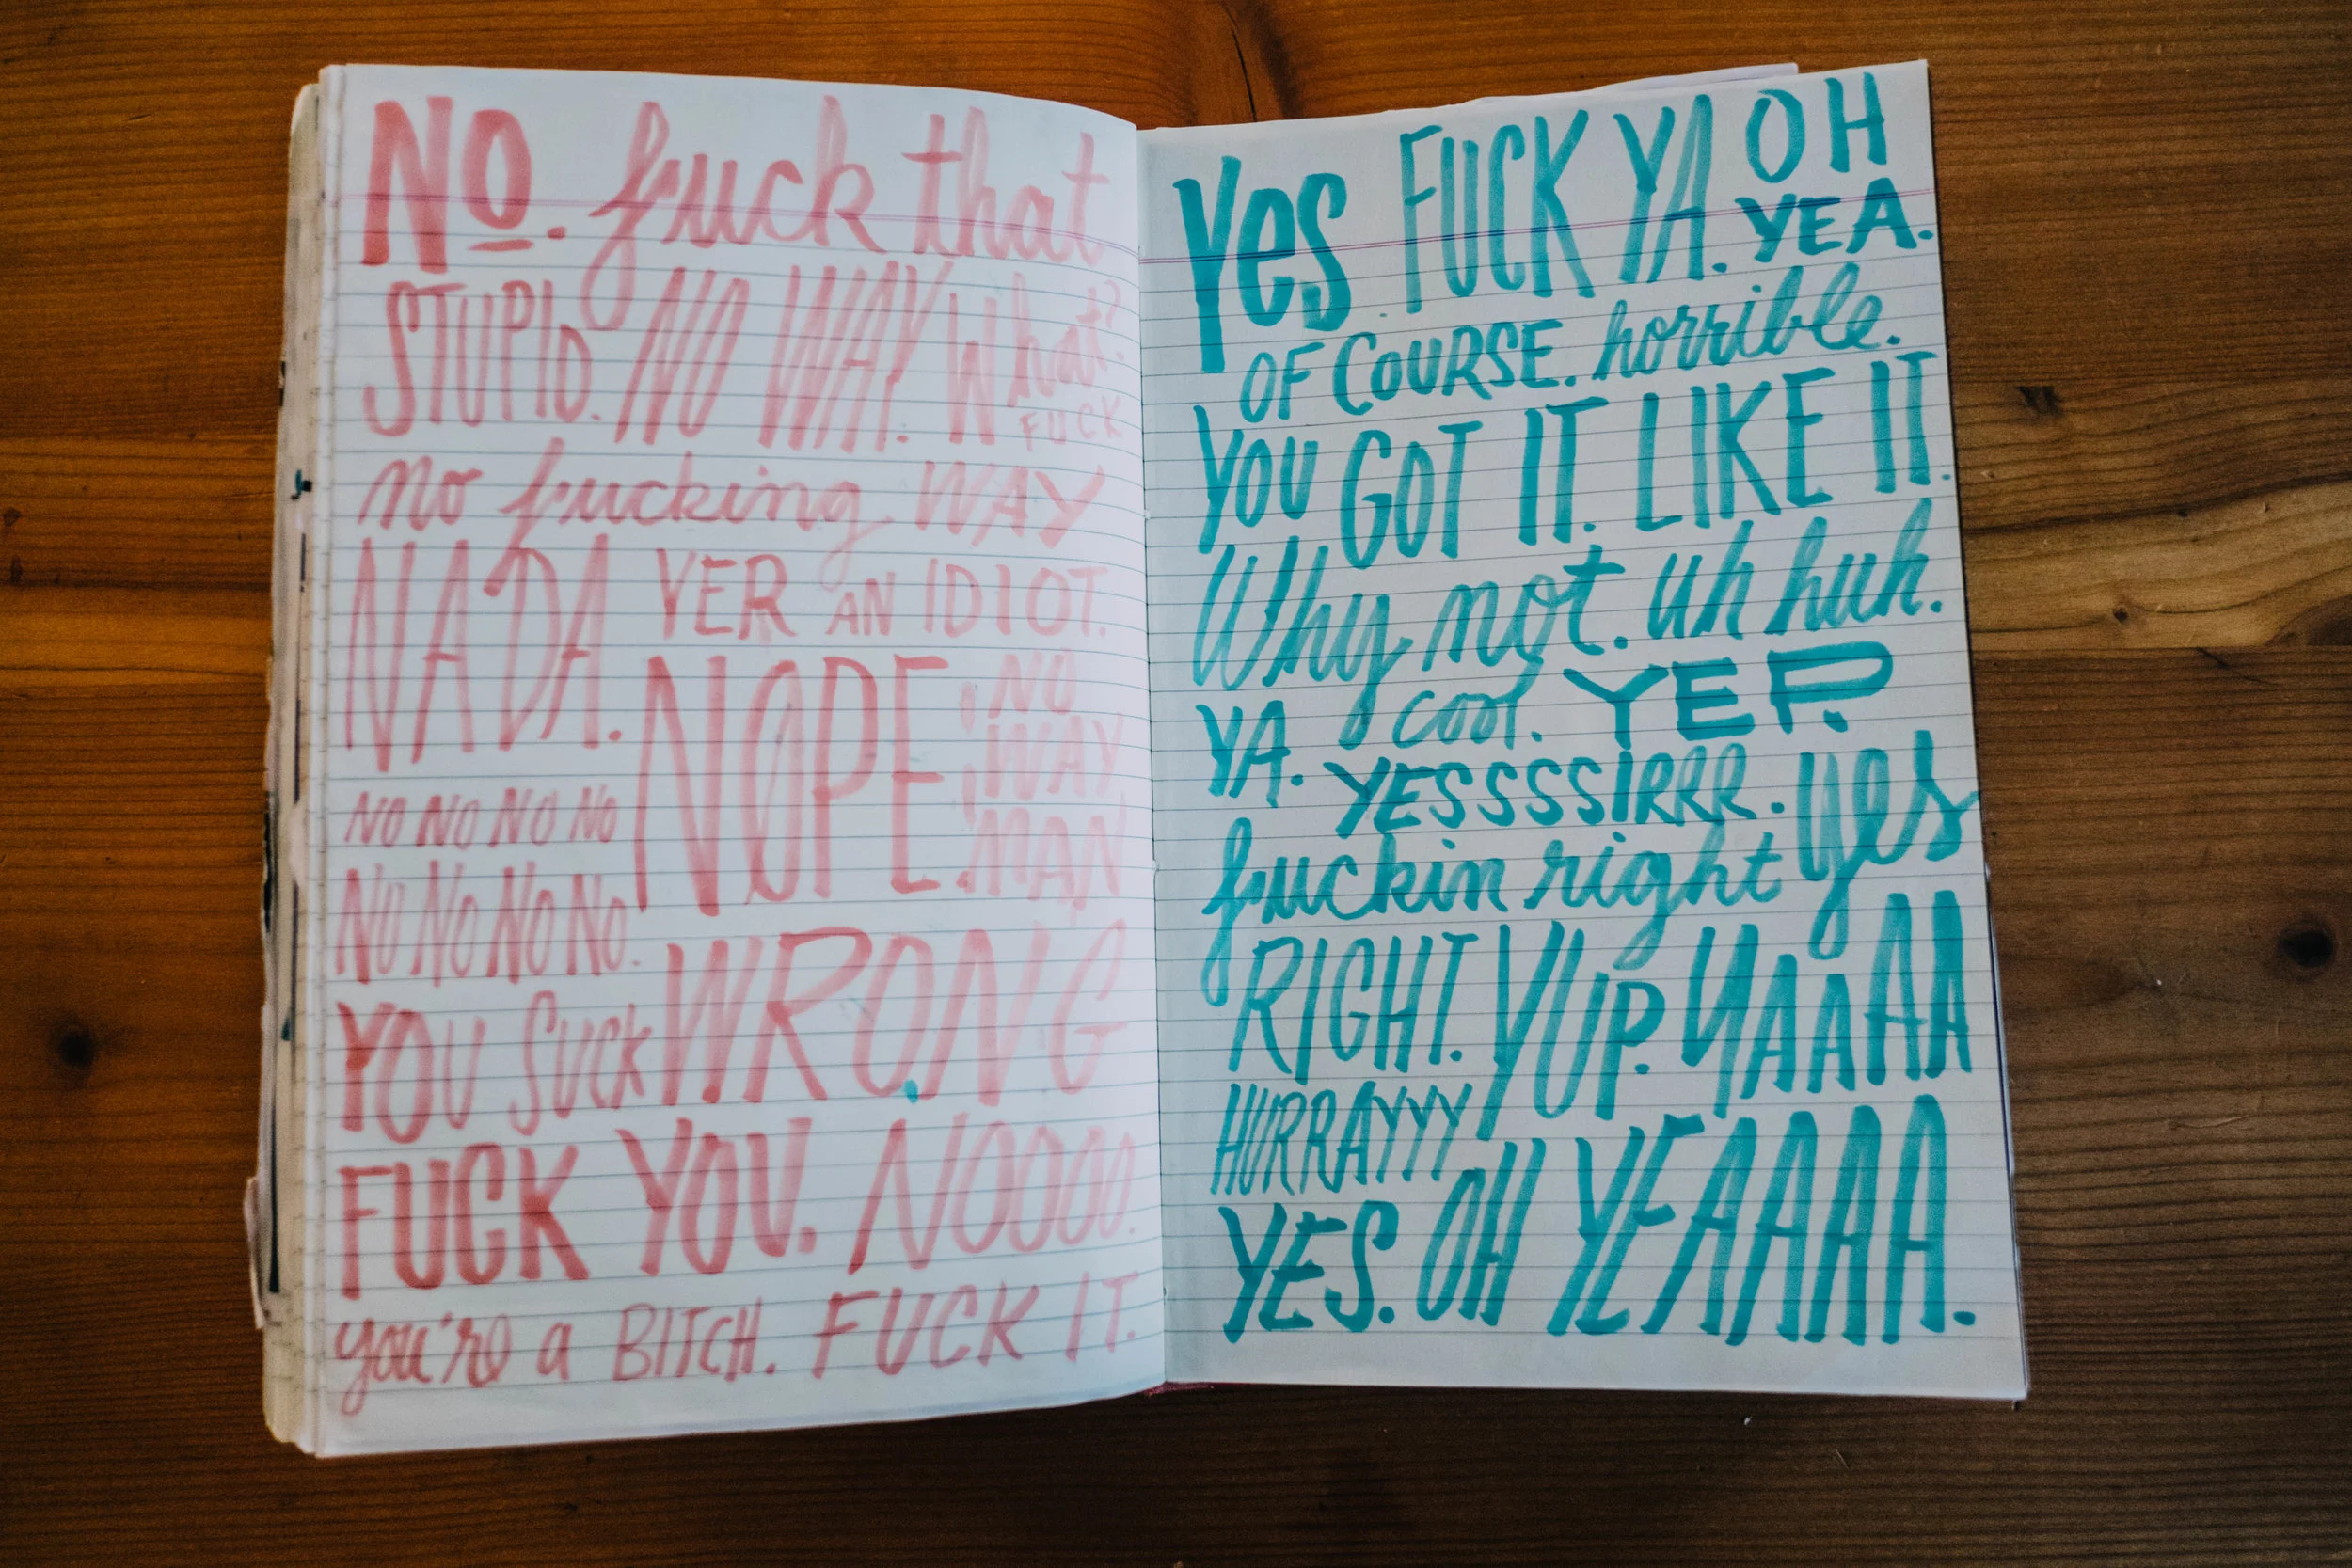 NO. fuck that
STUPID. NO WAY. What?
FUCK
no fucking WAY
NADA. YER AN IDIOT.
NOPE. NO
WAY
MAN
NO NO NO NO
NO NO NO NO.
YOU SUCK WRONG
FUCK YOU. NOOOO.
you're a BITCH. FUCK IT.
Yes FUCK YA. OH
YEA.
OF COURSE. horrible.
YOU GOT IT. LIKE IT.
Why not. uh huh.
YA. cool. YEP.
YESSSSIRRR. yes
fuckin right
RIGHT. YUP. YAAAAA
HURRAYYYY
YES. OH YEAAAA.